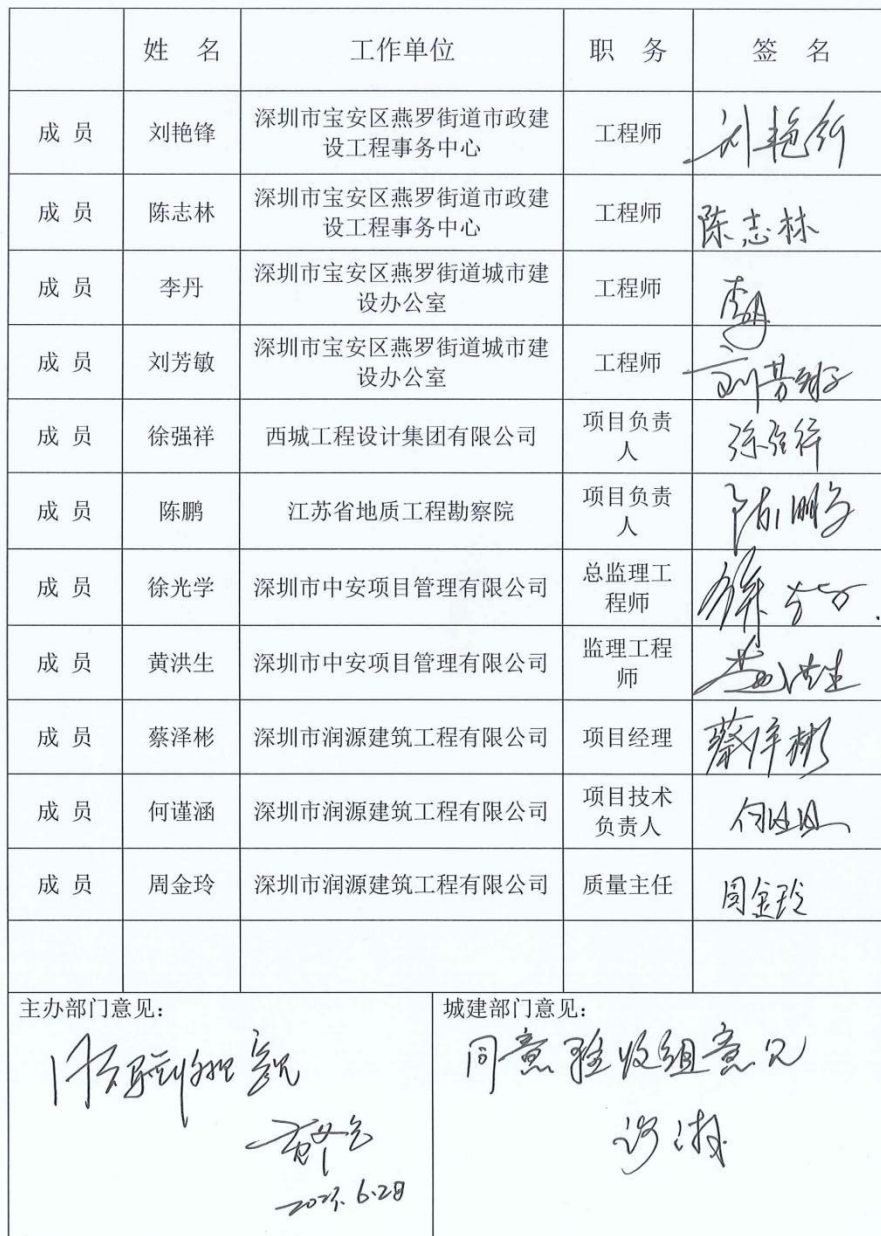 姓 名 工作单位 职 务 签 名
成 员 刘艳锋 深圳市宝安区燕罗街道市政建 工程师 刘艳锋
设工程事务中心
成 员 陈志林 深圳市宝安区燕罗街道市政建 工程师 陈志林
设工程事务中心
成 员 李丹 深圳市宝安区燕罗街道城市建 工程师 李丹
设办公室
成 员 刘芳敏 深圳市宝安区燕罗街道城市建 工程师 刘芳敏
设办公室
成 员 徐强祥 西城工程设计集团有限公司 项目负责 徐强祥
人
成 员 陈鹏 江苏省地质工程勘察院 项目负责 陈鹏
人
成 员 徐光学 深圳市中安项目管理有限公司 总监理工 徐光学
程师
成 员 黄洪生 深圳市中安项目管理有限公司 监理工程 黄洪生
师
成 员 蔡泽彬 深圳市润源建筑工程有限公司 项目经理 蔡泽彬
成 员 何谨涵 深圳市润源建筑工程有限公司 项目技术
负责人
成 员 周金玲 深圳市润源建筑工程有限公司 质量主任 周金玲
主办部门意见:
同意验收组意见
城建部门意见:
同意验收组意见